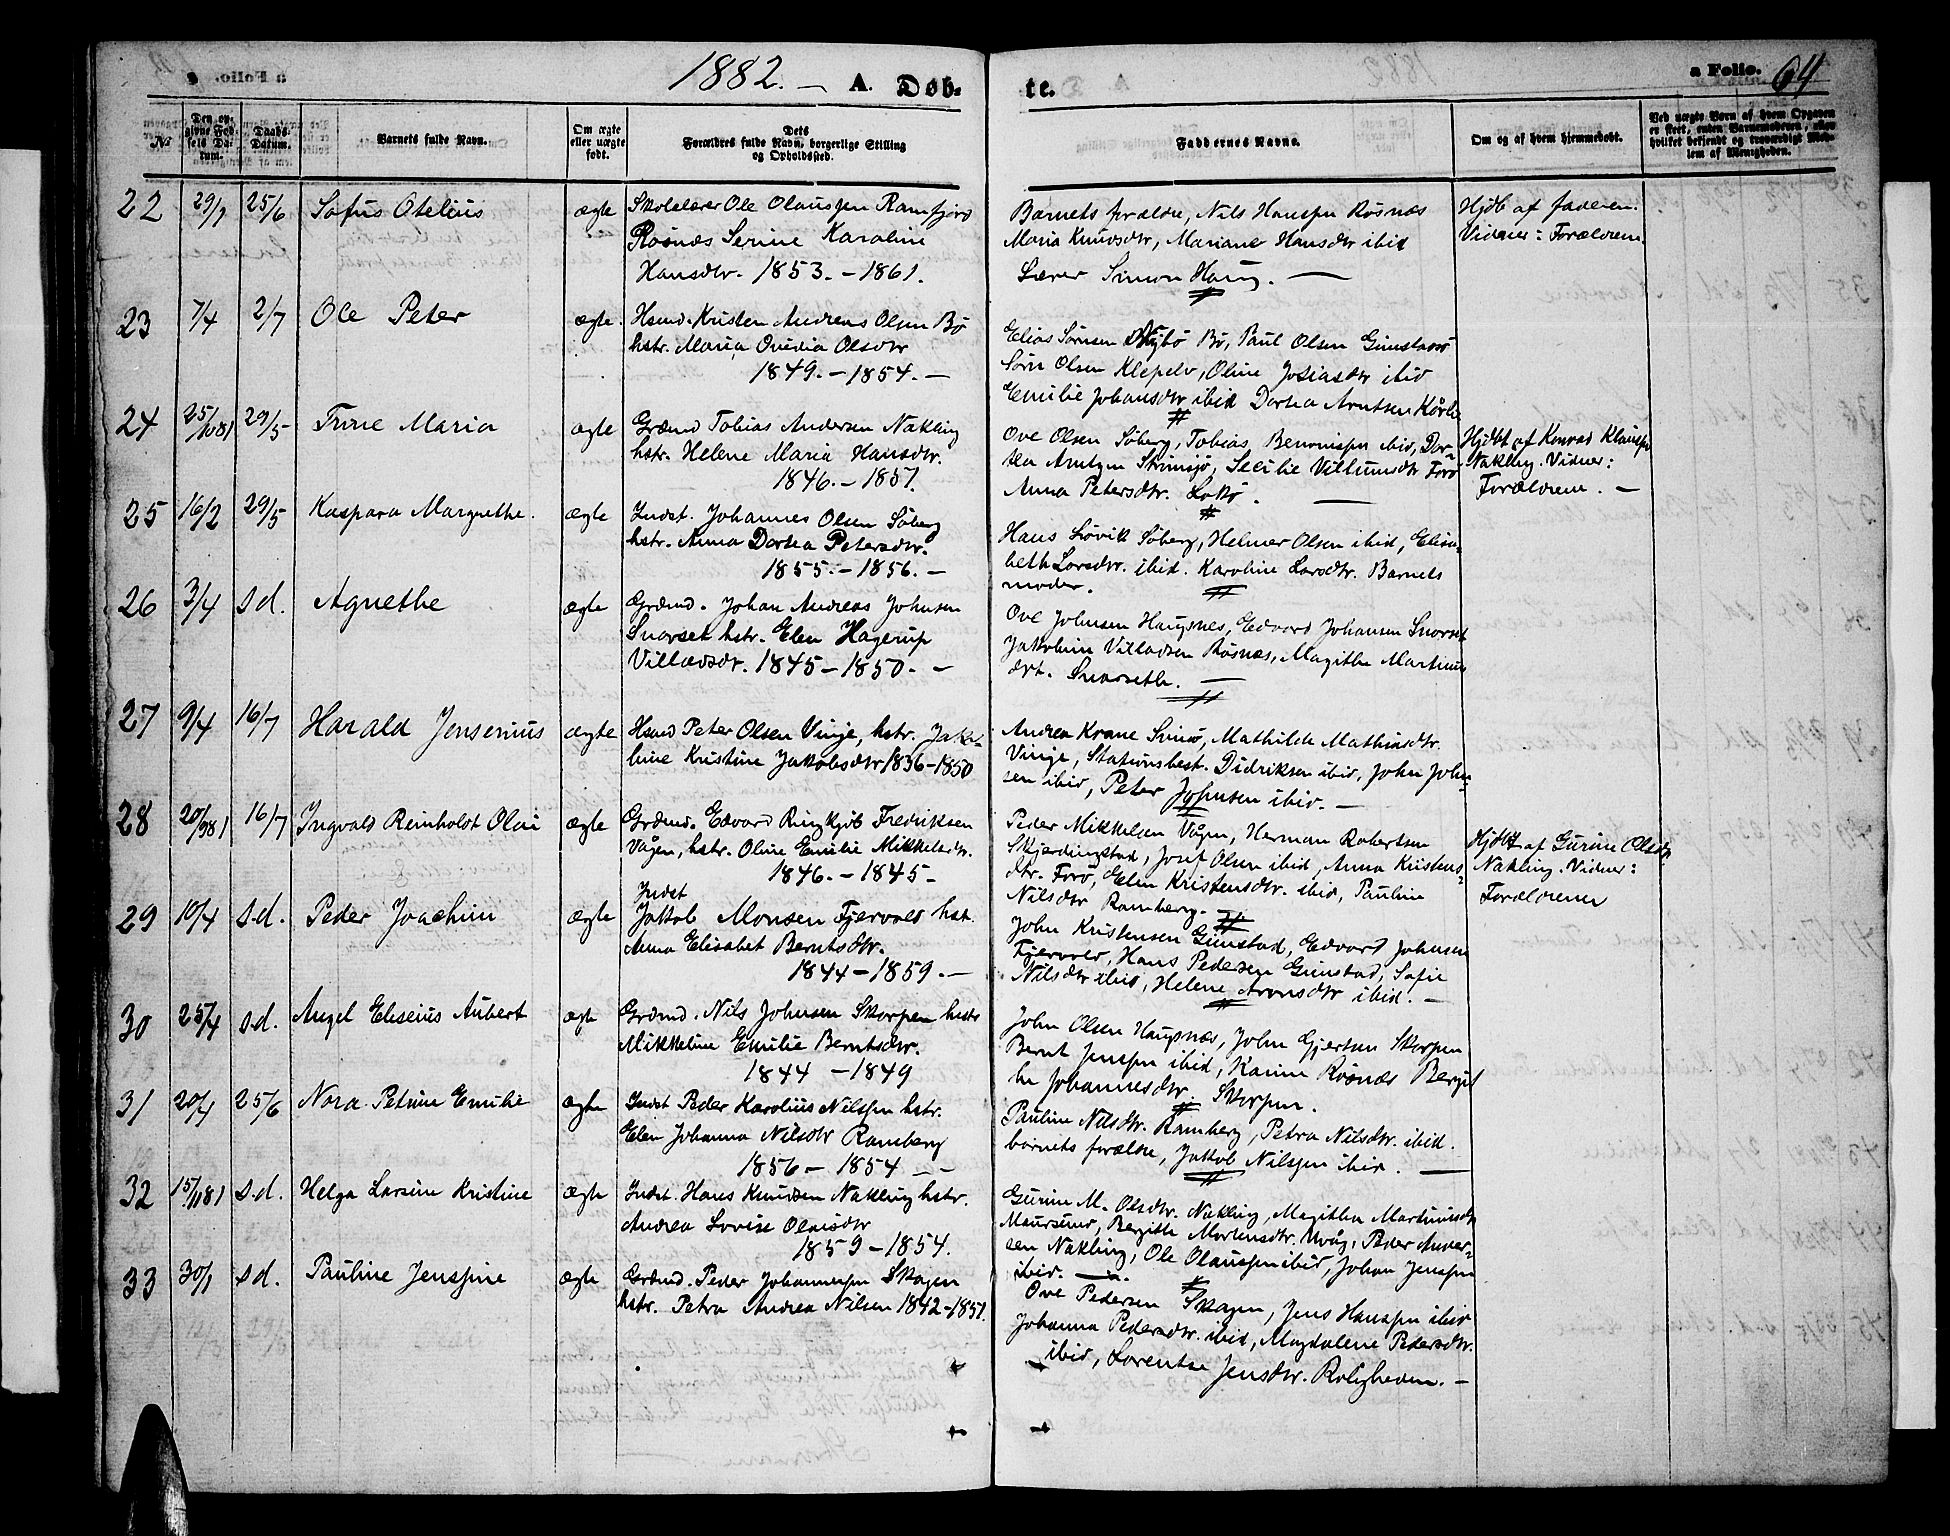 1882. — A. Døb- te. a Folio. 64
№
Den opgivne Fødsels Datum.
Daabs-Datum.
Barnets fulde Navn.
Om ægte eller uægte født.
Dets Forældres fulde Navn, borgerlige Stilling og Opholdssted.
Faddernes Navne.
Om og af hvem hjemmedøbt.
Ved uægte Børn af hvem Opgaven er skeet, enten Barnemoderen, eller hvilket bekjendt og troværdigt Medlem af Menigheden.
22 29/1 25/6 Sofus Otelius ægte Skolelærer Ole Olausen Ramfjord
Røsnæs Serine Karoline
Hansdtr. 1853. – 1861.
Barnets forældre, Nils Hansen Røsnæs
Maria Knudsdtr, Mariane Hansdtr ibid
Lærer Simon Haug. —
Hjdb af faderen.
Vidner: Forældrene.
23 7/4 2/7 Ole Peter ægte. Hsmd. Kristen Andreas Olsen Bø
hstr. Maria Ovidia Olsdtr
1849. – 1854. —
Elias Sørensen Nybø Bø, Paul Olsen Gimstad
Sørn Olsen Klepelv, Oline Josiasdtr ibid
Emilie Johansdtr ibid Dorthea Arntsen
24 25/10 81 29/5 Trine Maria ægte Grdmd Tobias Andersen Nakling
hstr. Helene Maria Hansdtr.
1846. – 1857.
Ove Olsen Søberg, Tobias ibid, Dor-
thea Arntzen Strumsjø, Secilie Villumsdtr Forø
Anna Petersdtr. —
Hjdbt af Konrad Klausen
Nakling. Vidner:
Forældrene. —
25 16/2 29/5 Kaspara Margrethe. ægte Indst. Johannes Olsen Søberg
hstr. Anna Dorthea Petersdtr.
1855. – 1856. —
Hans Løvik Søberg, Helmer Olsen ibid, Elisa-
beth Larsdtr. ibid. Karoline Larsdtr. Barnets
moder.
26 3/4 s.d. Agnethe ægte Grdmd. Johan Andreas Johnsen
Snarset hstr. Elen Hagerup
Villadsdtr. 1845 – 1850. —
Ove Johnsen Haugsnes, Edvard Johansen Snarset
Jakobine Villadsen Røsnæs, Magitha Martinus
dtr. Snarseth. —
27 9/4 16/7 Harald Jensenius ægte Hsmd Peter Olsen Vinje, hstr. Jako-
bine Kristine Jakobsdtr 1836 – 1850
Andrea Krane Smines, Mathilde Mathiasdtr.
Vinje, Stationsbest. Didriksen ibid, John John-
sen ibid, Peter Johnsen ibid. —
28 20/9 81 16/7 Ingvald Reinholdt Olai ægte Grdmd. Edvard Ringkjøb Fredriksen
Vågen, hstr. Oline Emilie Mikkelsdtr.
1846. – 1845 –
Peder Mikkelsen Vågen, Herman Robertsen
Skjerdingstad, Josef Olsen ibid, Anna Kristens-
dtr. Forø, Elen Kristensdtr. ibid, Pauline
Nilsdtr Ramberg. —
Hjdbt af Gurine Olsdtr
Nakling. Vidner:
Forældrene
29 10/4 s.d. Peder Joachim ægte Indst
Jakob Monsen Fjærvold hst.
Anna Elisabet Berntsdtr.
1844 – 1859. —
John Kristensen Gimstad, Edvard Johnsen
Fjærvold, Hans Pedersen Gimstad, Sofie
Nilsdtr ibid, Helene Aronsdtr ibid. —
30 25/4 s.d. Angel Eliseius Aubert ægte Grdmd. Nils Johnsen Skorpen hstr
Mikkeline Emilie Berntsdtr.
1844 – 1849
John Olsen Haugsnæs, John Gjertsen Skorpen
Bernt Jensen ibid, Karine Røsnæs Bergit
he Johannesdtr. Skorpen.
31 20/4 25/6 Nora Petrine Emilie ægte Indst Peder Karolius Nilssen hstr.
Elen Johanna Nilsdtr Ramberg
1856 – 1854 — —
Pauline Nilsdtr. Ramberg, Petra Nilsdtr. ibid.
barnets forældre, Jakob Nilssen ibid. —
32 15/11 81 s.d. Helga Larsine Kristine ægte Indst. Hans Knudsen Nakling hstr.
Andrea Lovise Olaisdtr
1859 – 1854.
Gurine M. Olsdtr. Nakling, Magitha Martinusdtr
Maursund, Bergitte Mortensdtr. Uvåg, Peder Ander-
sen Nakling, Ole Olaussen ibid, Johan Jenssen
ibid. —
33 30/1 s.d. Pauline Jenssine ægte Grdmd. Peder Johannessen Skagen
hstr. Petra Andrea Nilsen 1842 – 1851.
Ove Pedersen Skagen, Jens Hanssen ibid
Johanna Pedersdtr. ibid, Magdalene Pedersdtr.
ibid, Lorentse Jensdtr. Roligheden. —